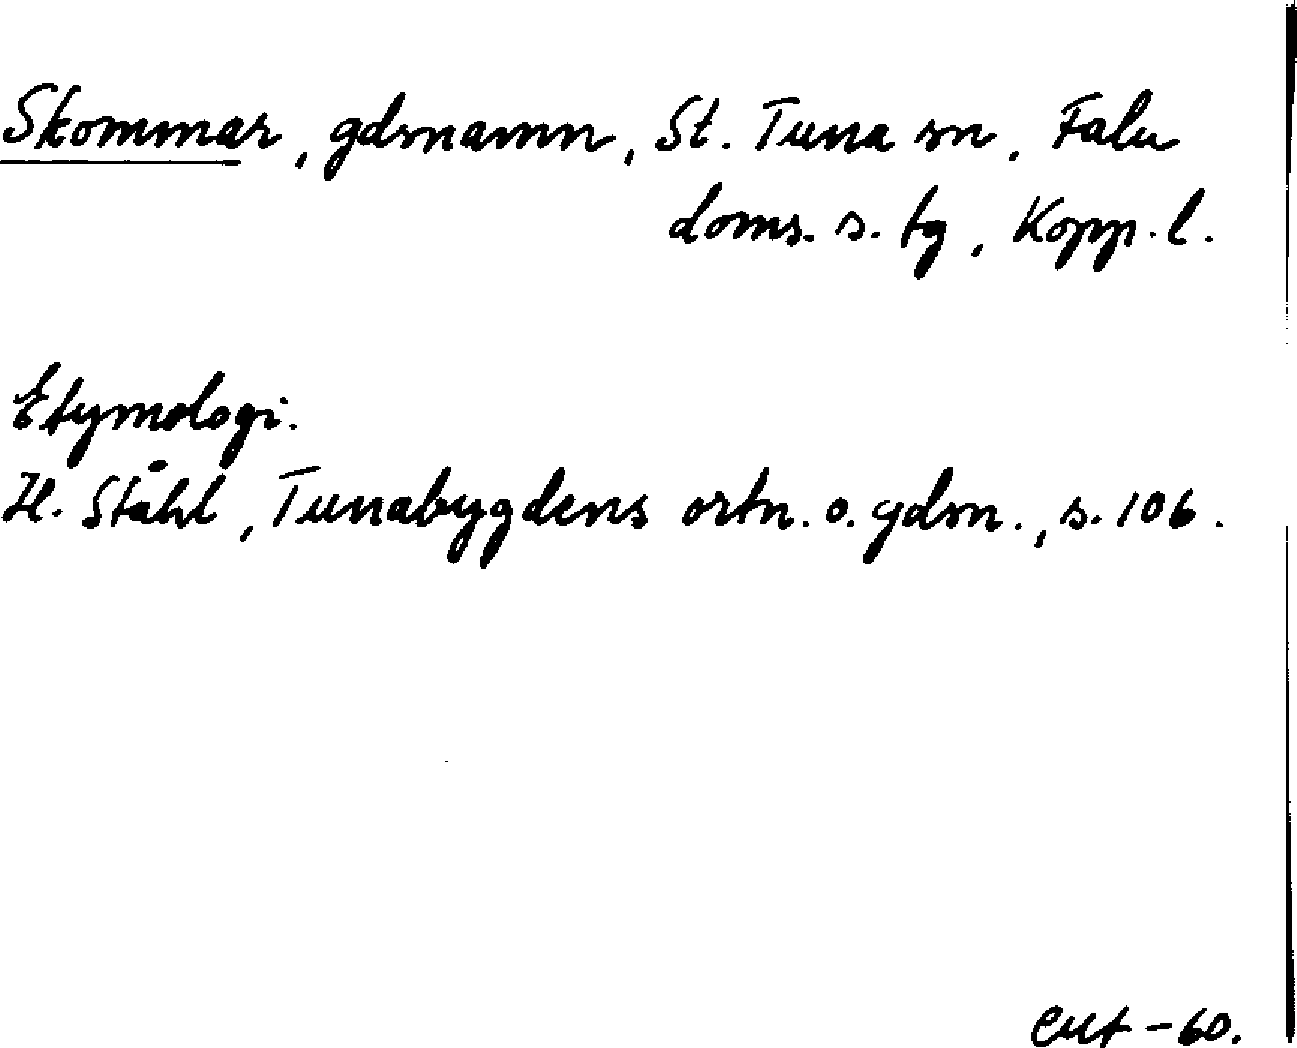 Skommar, gdsnamn, St. Tuna sn. Falu
doms. s. tg, Kopp. l.
Etymologi.
H. Ståhl, Tunabygdens ortn. o. gdsn., s. 106.
-60.